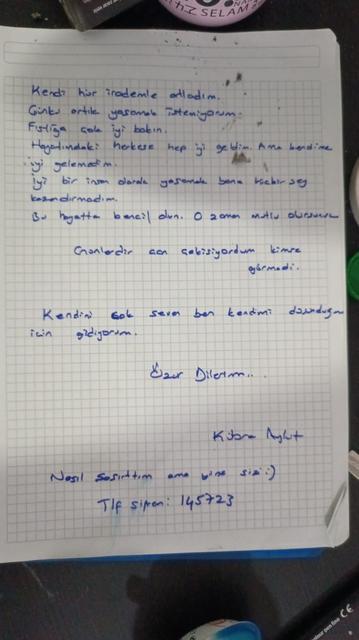 SELAM
Kendi hür irademle atladım.
Çünkü artık yaşamak istemiyorum.
Fıstığa çok iyi bakın.
Hayatımdaki herkese hep iyi geldim. Ama kendime
iyi gelemedim.
İyi bir insan olarak yaşamak bana hiçbir şey
kazandırmadım.
Bu hayatta bencil olun. O zaman mutlu olursunuz
Günlerdir can çekişiyordum kimse
görmedi.
Kendini çok seven ben kendimi düşündüğüm
için gidiyorum.
Özür Dilerim..
Kübra Aykut
Nasıl şaşırttım ama yine sizi :)
Tlf şifrem: 145723